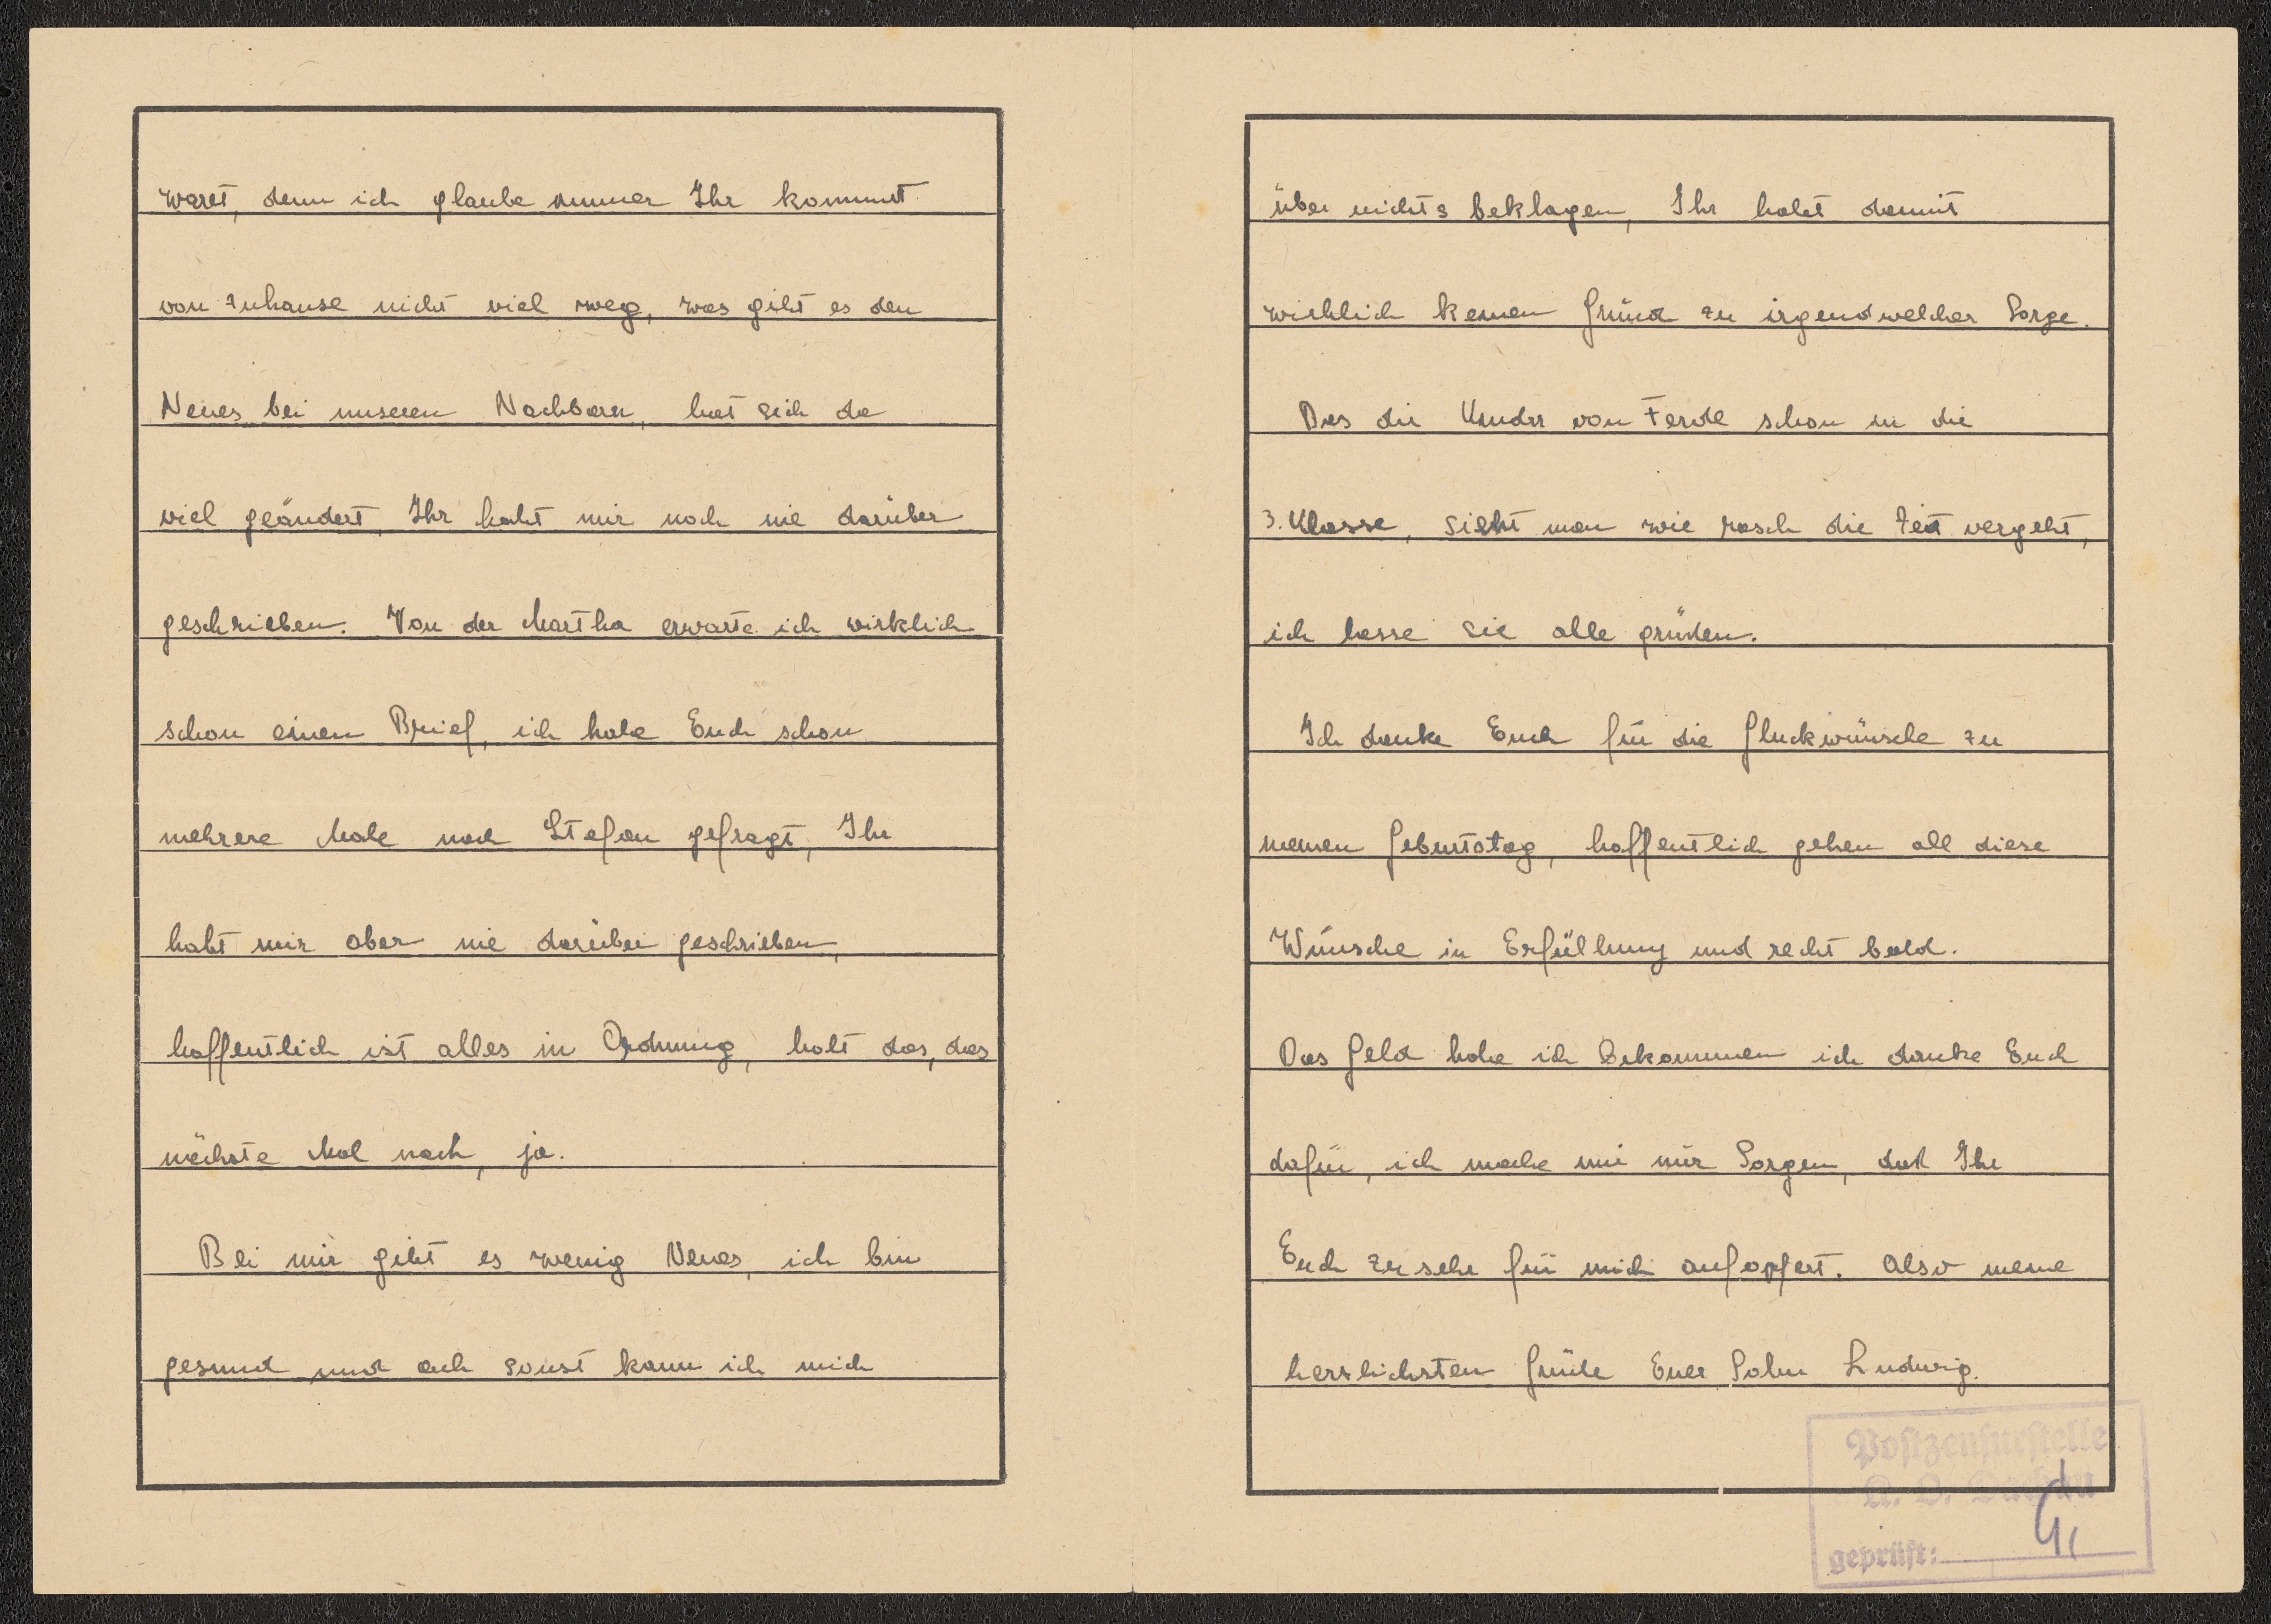 waret, denn ich glaube immer Ihr kommt
von zuhause nicht viel weg, was gibt es den
Neues bei unseren Nachbarn, hat sich da
viel geändert, Ihr habt mir noch nie darüber
geschrieben. Von der Martha erwarte ich wirklich
schon einen Brief, ich habe Euch schon
mehrere Male nach Stefan gefragt, Ihr
habt mir aber nie darüber geschrieben,
hoffentlich ist alles in Ordnung, holt das, das
nächste Mal nach, ja.
Bei mir gibt es wenig Neues, ich bin
gesund und auch sonst kann ich mich
über nichts beklagen, Ihr habt damit
wirklich keinen Grund zu irgendwelcher Sorge.
Das die Kinder von Ferdl schon in die
3. Klasse, sieht man wie rasch die Zeit vergeht,
ich lasse sie alle grüßen.
Ich danke Euch für die Gluckwünsche zu
meinen Geburtstag, hoffentlich gehen all diese
Wünsche in Erfüllung und recht bald.
Das Geld habe ich bekommen ich danke Euch
dafür, ich mache mir nur Sorgen, daß Ihr
Euch zu sehr für mich aufopfert. Also meine
herzlichsten Grüße Euer Sohn Ludwig.
Postzensurstelle
K. L. Dachau
geprüft: